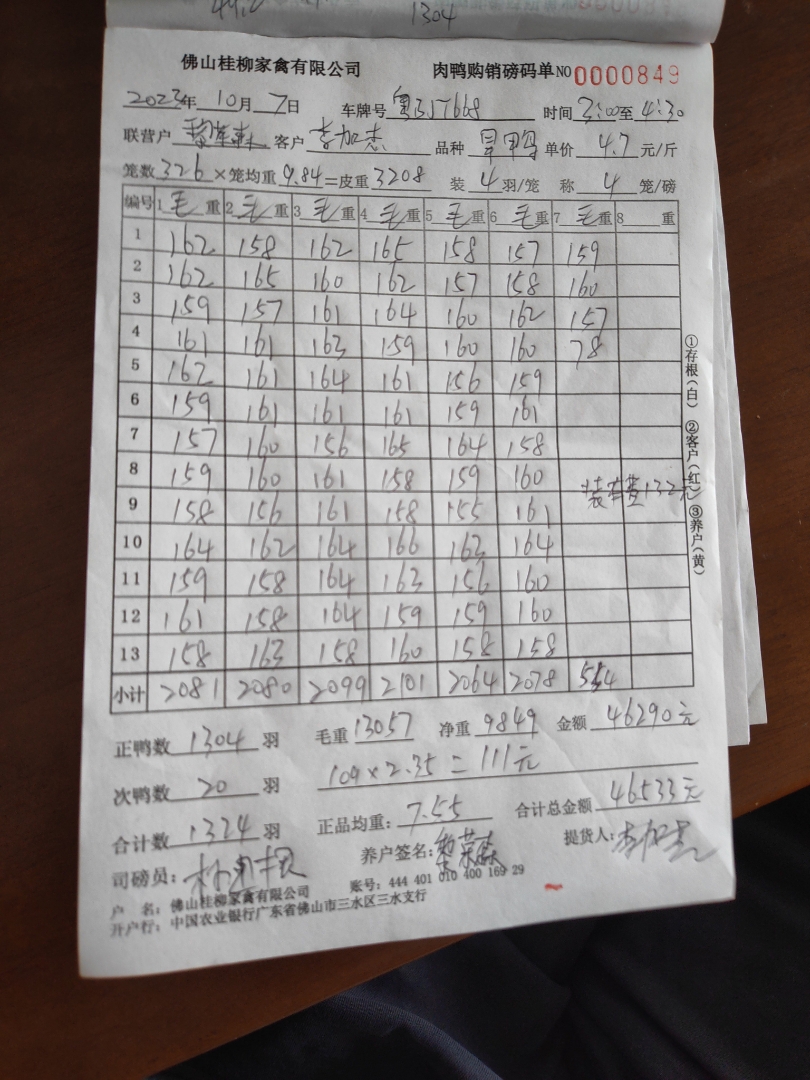 1304
佛山桂柳家禽有限公司 肉鸭购销磅码单NO 0000849
2023年 10月 7日 车牌号 粤 时间 2:00至 4:30
联营户 客户 李加杰 品种 单价 4.7 元/斤
笼数 326 ×笼均重 9.84 =皮重 3208 装 4 羽/笼 称 4 笼/磅
编号 1毛重 2毛重 3毛重 4毛重 5毛重 6毛重 7毛重 8 重
1 162 158 162 165 158 157 159
2 162 165 160 162 157 158 160
3 159 157 161 164 160 162 157
4 161 161 163 159 160 160 78
5 162 161 164 161 156 159
6 159 161 161 161 159 161
7 157 160 156 165 164 158
8 159 160 161 158 159 160
装车费132元
9 158 156 161 158 155 161
10 164 162 164 166 163 164
11 159 158 164 163 156 160
12 161 158 164 159 159 160
13 158 163 158 160 158 158
小计 2081 2080 2099 2101 2064 2078 554
①存根(白) ②客户(红) ③养户(黄)
正鸭数 1304 羽 毛重 13057 净重 9849 金额 46290元
次鸭数 20 羽 109×2.35=111元
合计数 1324 羽 正品均重: 7.55 合计总金额 46533元
司磅员: 养户签名: 提货人: 李加杰
户 名: 佛山桂柳家禽有限公司 账号: 444 401 010 400 169 29
开户行: 中国农业银行广东省佛山市三水区三水支行